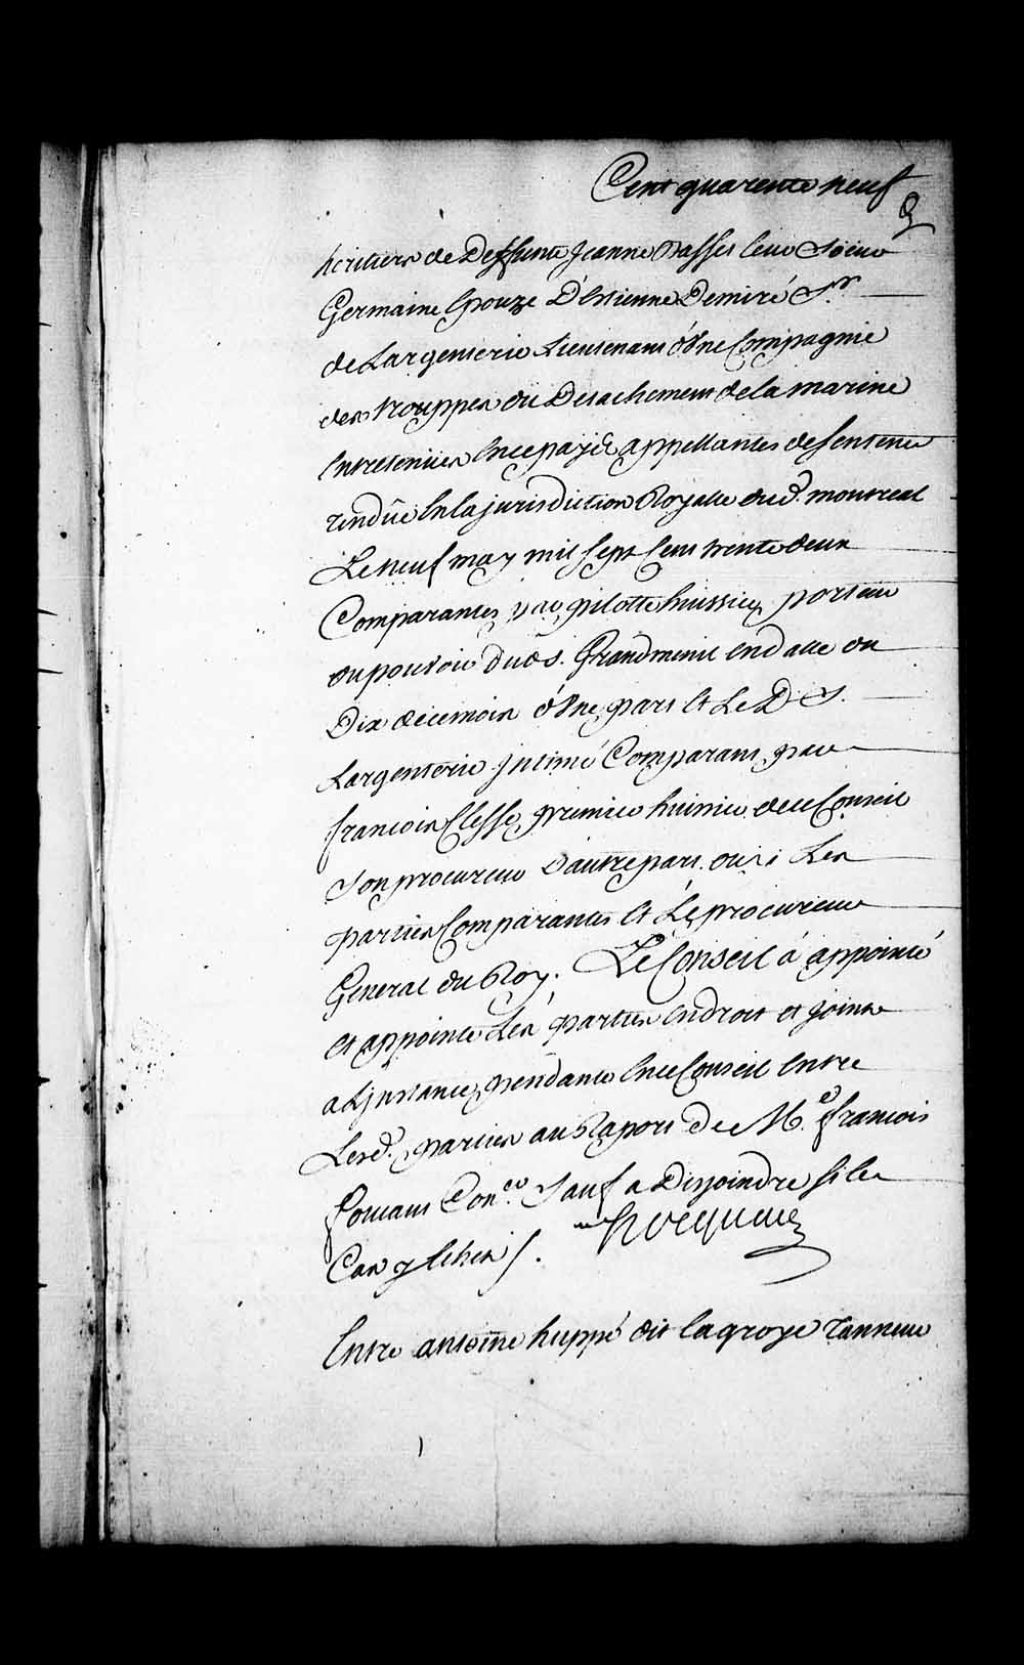 Cent quarente neuf
heritiers de Deffunte Jeanne Passes leur Soeur
Germaine Epouze D'Estienne Demiré Sr.
de Largenterie Lieutenant d'Une Compagnie
des trouppes du Detachement de la marine
Entretenües En ce païs appellantes de Sentence
rendüe En la jurisdiction Royalle dud. montreal
Le neuf may mil sept Cent trente deux
Comparantes par pilotte huissier porteur
du pouvoir dud. s. Grandmenil en datte du
Dix de ce mois d'Une part Et Le D. S.
Largenterie Intimé Comparant par
francois Clesse premier huissier de ce Conseil
Son procureur D'autre part. ouïs Les
parties Comparantes Et Le procureur
General du Roy. Le Conseil à appointé
et appointe Les parties En droit et joint
a L'Instance pendante En ce Conseil Entre
Lesd. parties au Raport de Me. francois
foucaut Conser. Sauf a Disjoindre si le
Cas y Echet /.
hocquart
Entre antoine huppé dit lagroye Tanneur